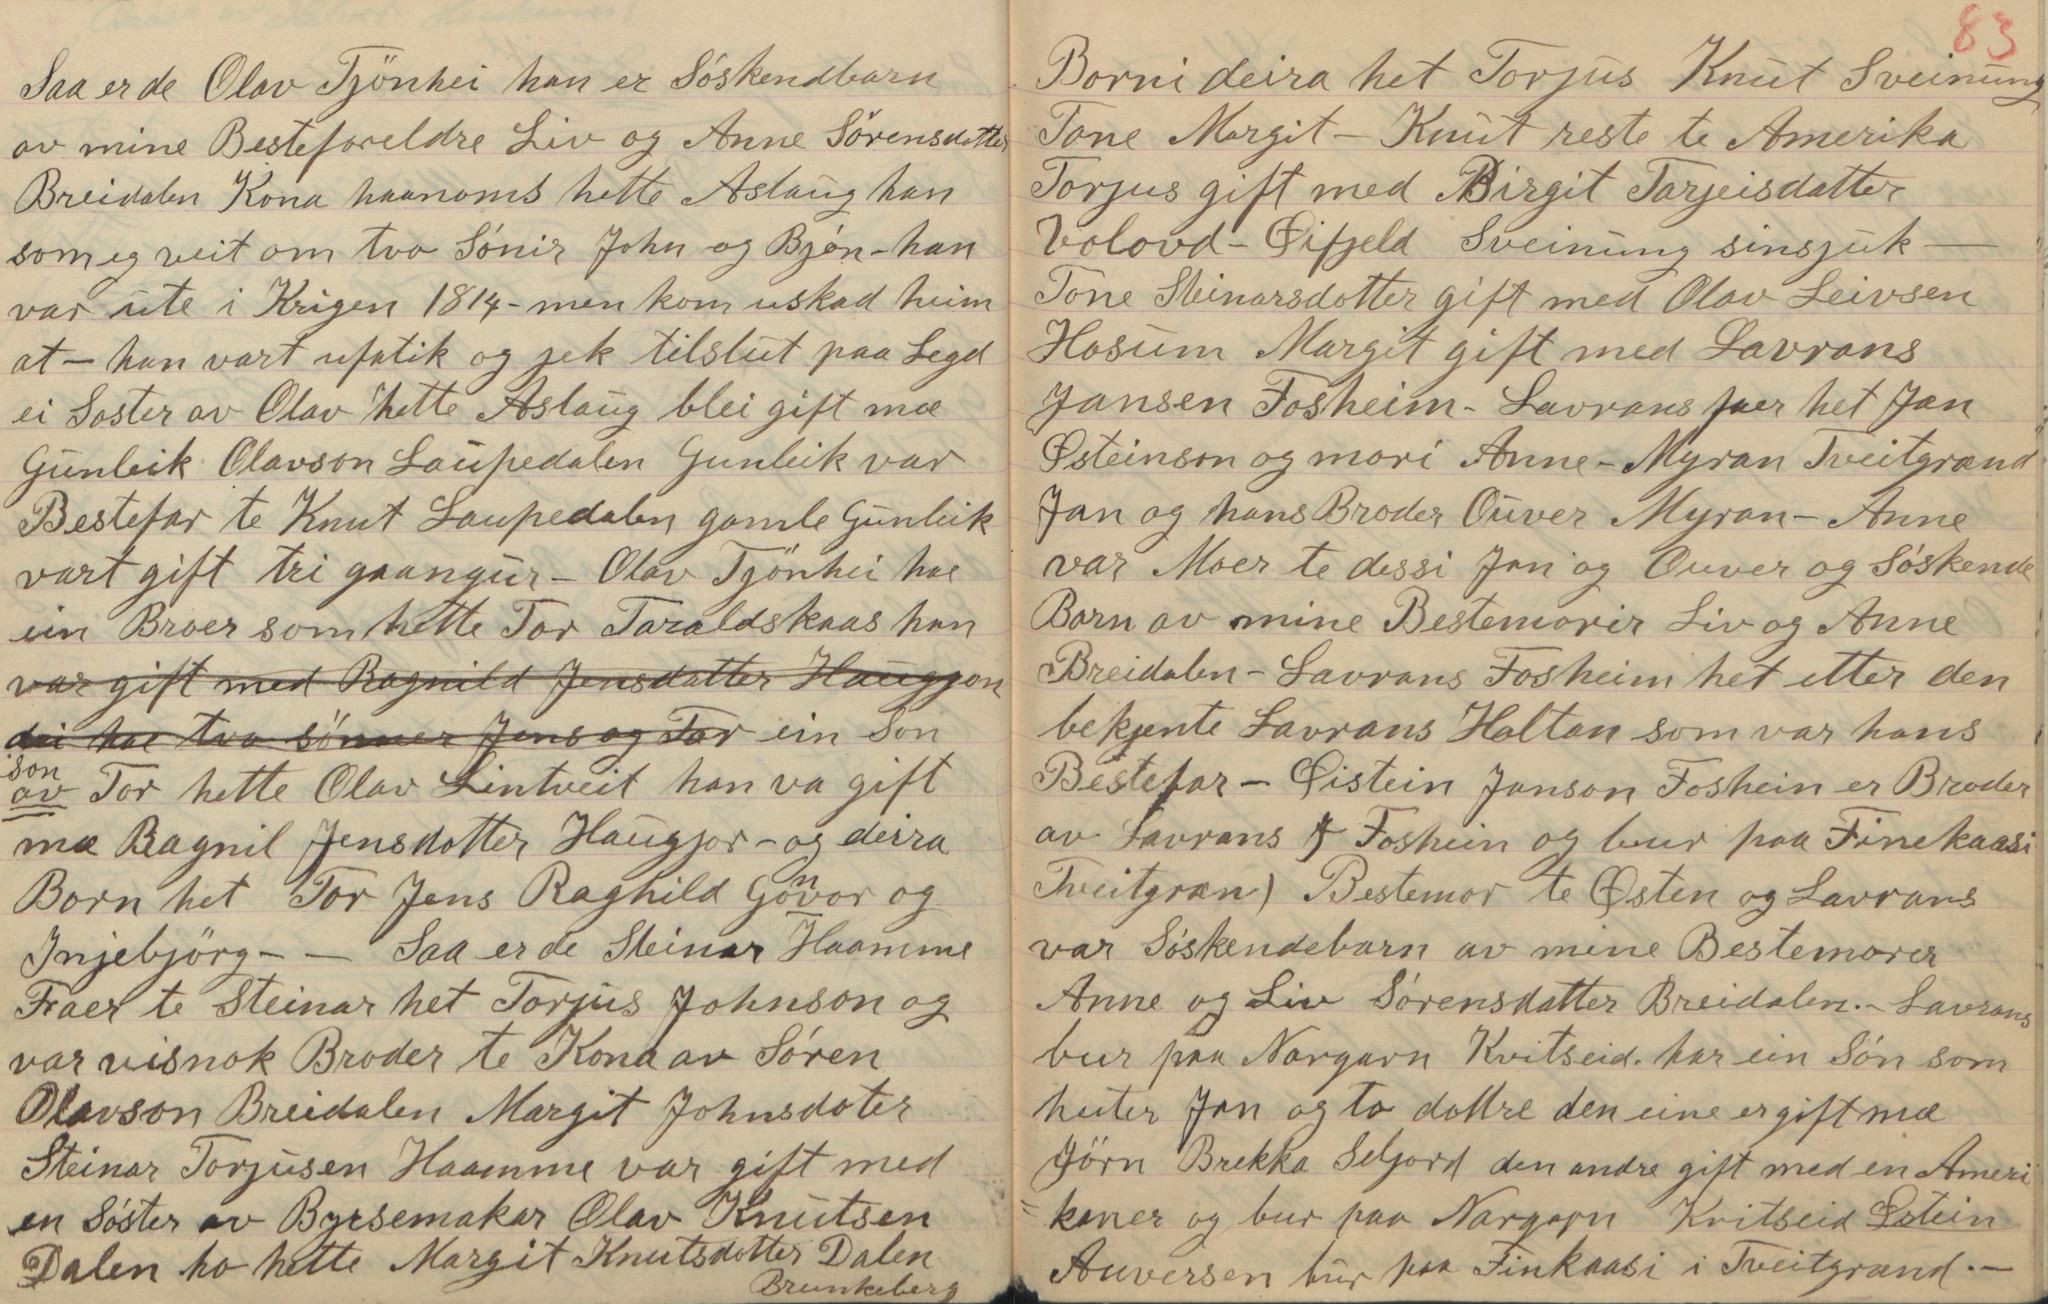 Saa er de Olav Tjönhei han er Sóskendbarn
av mine Besteforeldre Liv og Anne Sörensdatter
Breidalen Kona haanoms hette Aslaug han
som eg veit om tvo Sónir John og Bjón - han
var ute i Krigen 1814 - men kom uskad heim
at - han vart ufatik og jek tilslut paa Legd
ei Soster av Olav hette Aslaug blei gift mæ
Gunleik Olavson Laupedalen Gunleik var
Bestefar te Knut Laupedalen gamle Gunleik
vart gift tri gaangur - Olav Tjönhei hae
ein Broer som hette Tor Taraldskaas han
var gift med Ragnild Jensdatter Haugjon
dei hae tvo sönner Jens og Tor ein Son
son
av Tor hette Olav Lintveit han va gift
mæ Ragnil Jensdotter Haugjor - og deira
Born het Tor Jens Raghild Gónvor og
Injebjörg - - Saa er de Steinar Haamme
Faer te Steinar het Torjus Johnson og
var visnok Broder te Kona av Sóren
Olavson Breidalen Margit Johnsdoter
Steinar Torjusen Haamme var gift med
en Sóster av Byrsemakar Olav Knutsen
Dalen ho hette Margit Knutsdotter Dalen
Brunkeberg
83
Borni deira het Torjus Knut Sveinung
Tone Margit - Knut reste te Amerika
Torjus gift med Birgit Tarjeisdatter
Volovd - Øifjeld Sveinung sinsjuk -
Tone Steinarsdotter gift med Olav Leivsen
Hosum Margit gift med Lavrans
Jansen Fosheim - Lavrans faer het Jan
Østeinson og mori Anne - Myran Tveitgrænd
Jan og hans Broder Ouver Myran - Anne
var Moer te dessi Jan og Ouver og Sóskende
Born av mine Bestemorir Liv og Anne
Breidalen - Lavrans Fosheim het etter den
bekjente Lavrans Holtan som var hans
Bestefar - Øistein Janson Foshein er Broder
av Lavrans Foshein og bur paa Finekaasi
Tveitgræn) Bestemor te Østen og Lavrans
var Sóskendebarn av mine Bestemorer
Anne og Liv Sórensdatter Breidalen. - Lavrans
bur paa Norgarn Kvitseid. har ein Són som
heiter Jan og to dottre den eine er gift mæ
Jörn Brekka Seljord den andre gift med en Ameri
= kaner og bur paa Norgarn Kvitseid Østein
Auversen bur paa Finkaasi i Tveitgrænd. -